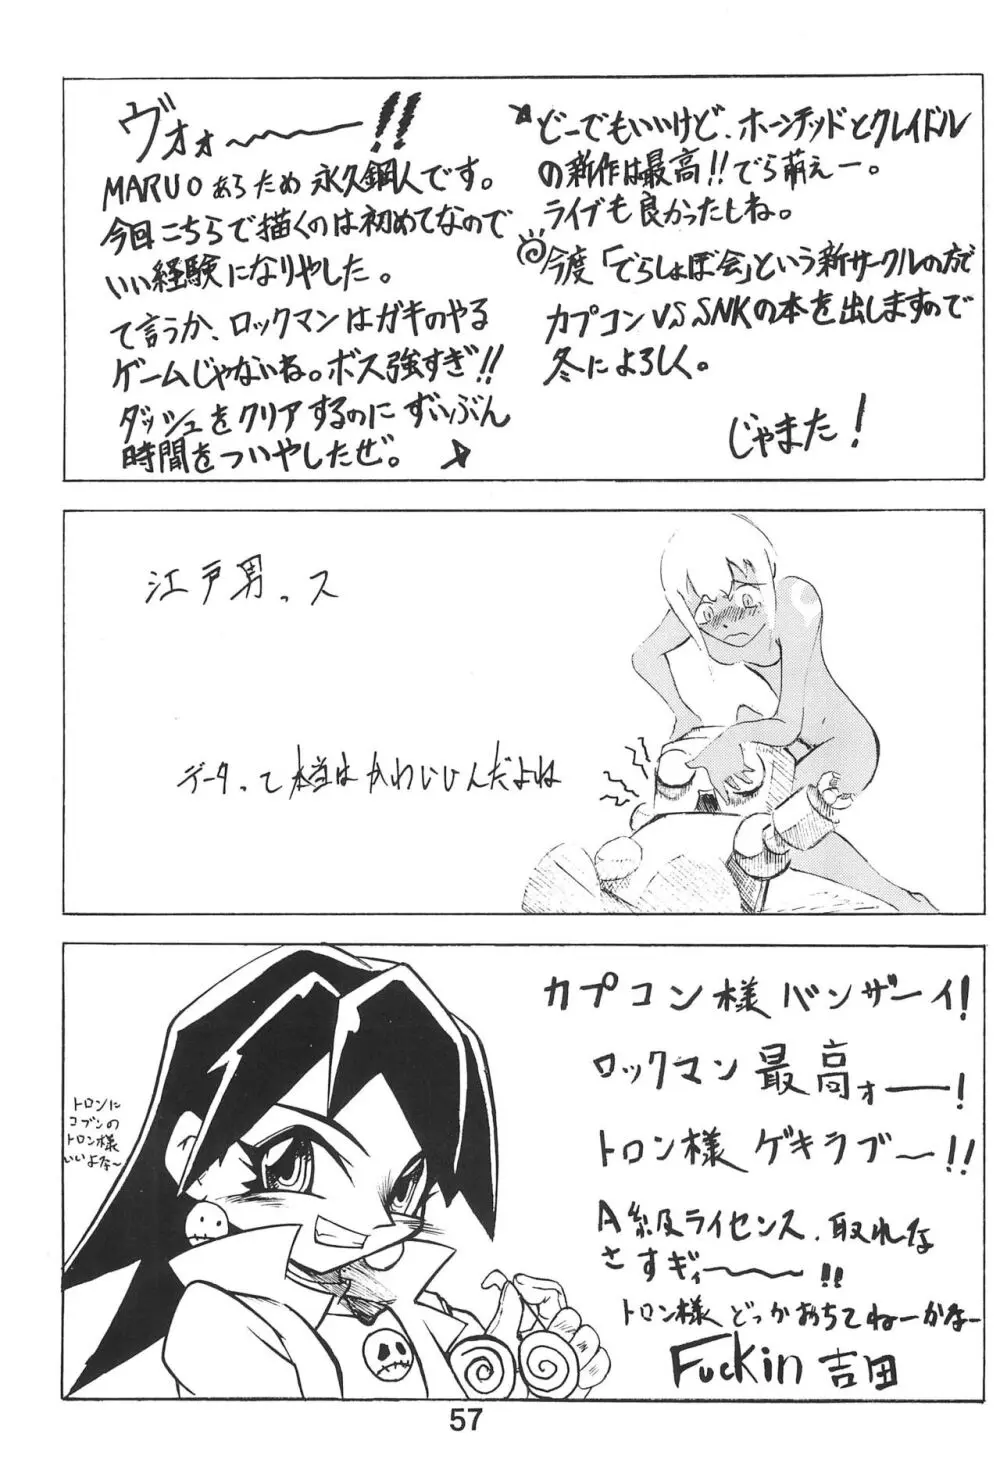 ヴォォ〜〜〜!!
MARUOあらため永久鋼人です。
今回こちらで描くのは初めてなので
いい経験になりやした。
て言うか、ロックマンはガキのやる
ゲームじゃないね。ボス強すぎ!!
ダッシュをクリアするのにずいぶん
時間をついやしたぜ。
どーでもいいけど、ホーンテッドとクレイドル
の新作は最高!!でら萌えー。
ライブも良かったしね。
今度「でらしょぼ会」という新サークルの方で
カプコンVS SNKの本を出しますので
冬によろしく。
じゃまた!
江戸男っス
データって本当はかわいいんだよね
カプコン様バンザーイ!
ロックマン最高ォー!
トロン様ゲキラブ〜!!
A級ライセンス、取れな
さすぎィ〜〜!!
トロン様どっかおちてねーかなー
Fuckin吉田
トロンに
コブンの
トロン様
いいよな〜
57